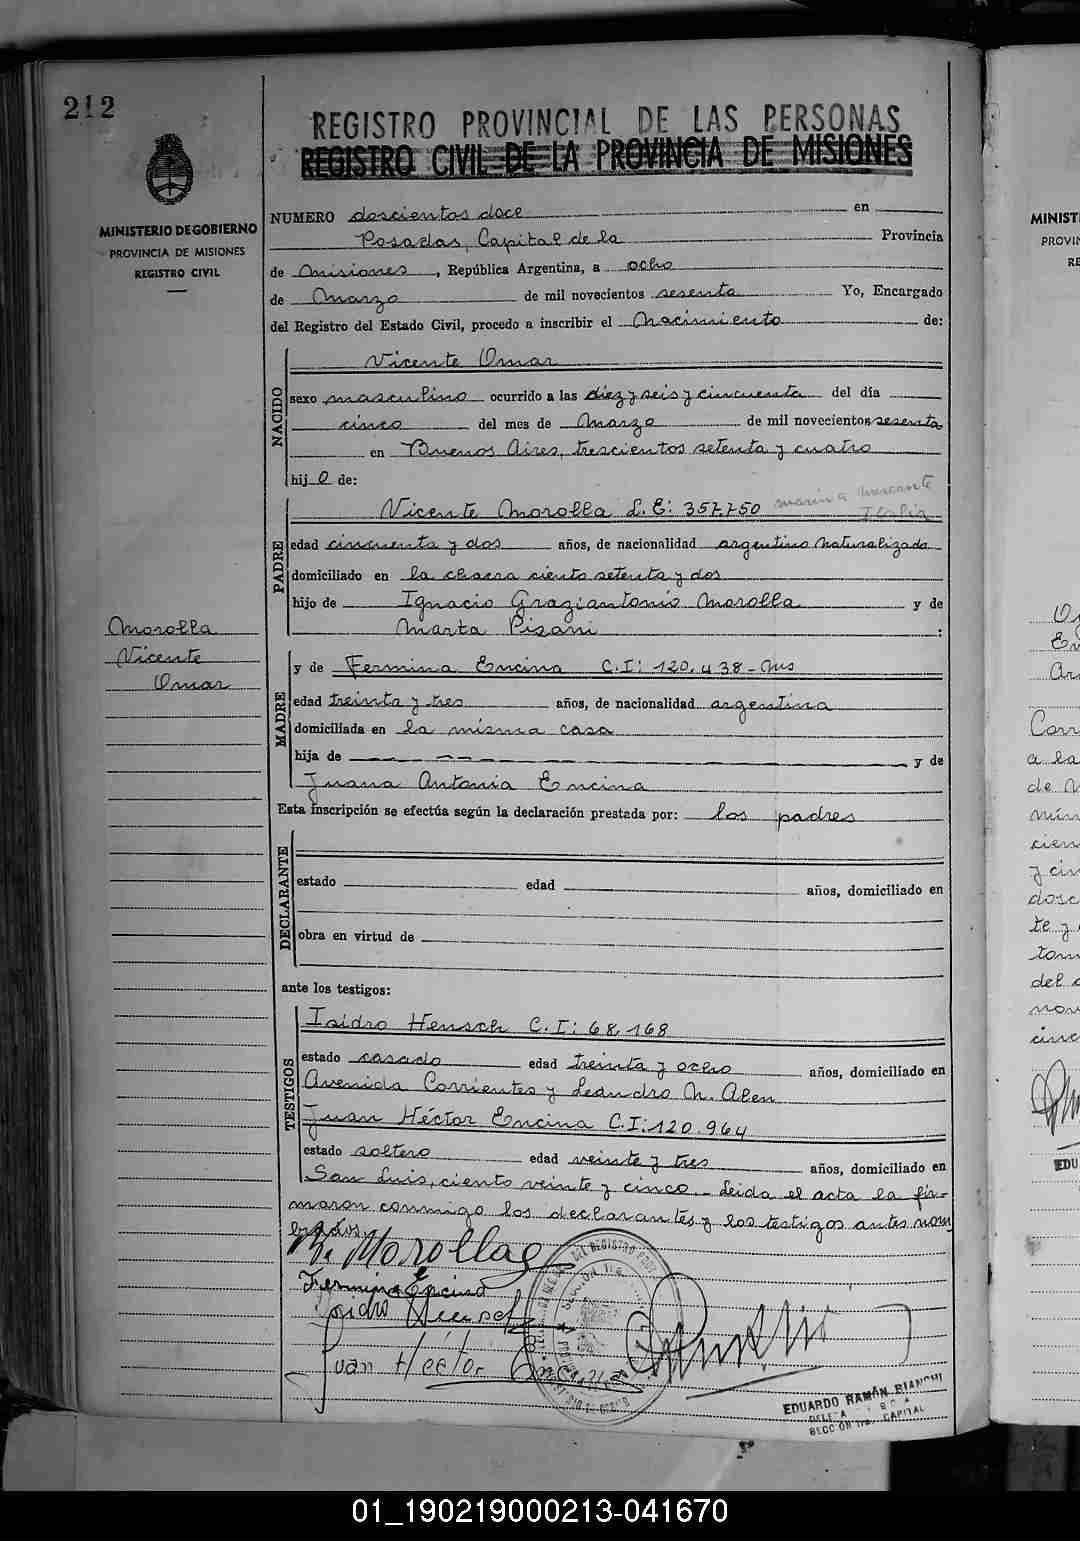 212
REGISTRO PROVINCIAL DE LAS PERSONAS
REGISTRO CIVIL DE LA PROVINCIA DE MISIONES
MINISTERIO DE GOBIERNO
PROVINCIA DE MISIONES
REGISTRO CIVIL
NUMERO doscientos doce en
Posadas, Capital de la Provincia
de Misiones, República Argentina, a ocho
de Marzo de mil novecientos sesenta Yo, Encargado
del Registro del Estado Civil, procedo a inscribir el Nacimiento de:
NACIDO
Vicente Omar
sexo masculino ocurrido a las diez y seis y cincuenta del día
cinco del mes de Marzo de mil novecientos sesenta
en Buenos Aires, trescientos setenta y cuatro
hijo de:
PADRE
Vicente Morolla L.E: 357.750 marina mercante
Italia
edad cincuenta y dos años, de nacionalidad argentino naturalizado
domiciliado en la chacra ciento setenta y dos
hijo de Ignacio Graziantonio Morolla y de
Marta Pisani :
Morolla
Vicente
Omar
MADRE
y de Fermina Encina C.I: 120.438-Mns
edad treinta y tres años, de nacionalidad argentina
domiciliada en la misma casa
hija de y de
Juana Antonia Encina
Esta inscripción se efectúa según la declaración prestada por: los padres
DECLARANTE
estado edad años, domiciliado en
obra en virtud de
ante los testigos:
TESTIGOS
Isidro Hensch C.I: 68.168
estado casado edad treinta y ocho años, domiciliado en
Avenida Corrientes y Leandro N. Alen
Juan Héctor Encina C.I: 120.964
estado soltero edad veinte y tres años, domiciliado en
San Luis, ciento veinte y cinco.- Leida el acta la fir-
maron conmigo los declarantes y los testigos antes nom
brados
V. Morolla
Fermina Encina
Isidro Hensch
Juan Héctor Encina
EDUARDO RAMÓN BIANCHI
SECCIÓN 1ra. CAPITAL
MINIST
PROVIN
RE
Corr
a la
de M
mis
cien
y cin
dosc
te y
tom
del
nov
cinc
EDU
01_190219000213-041670